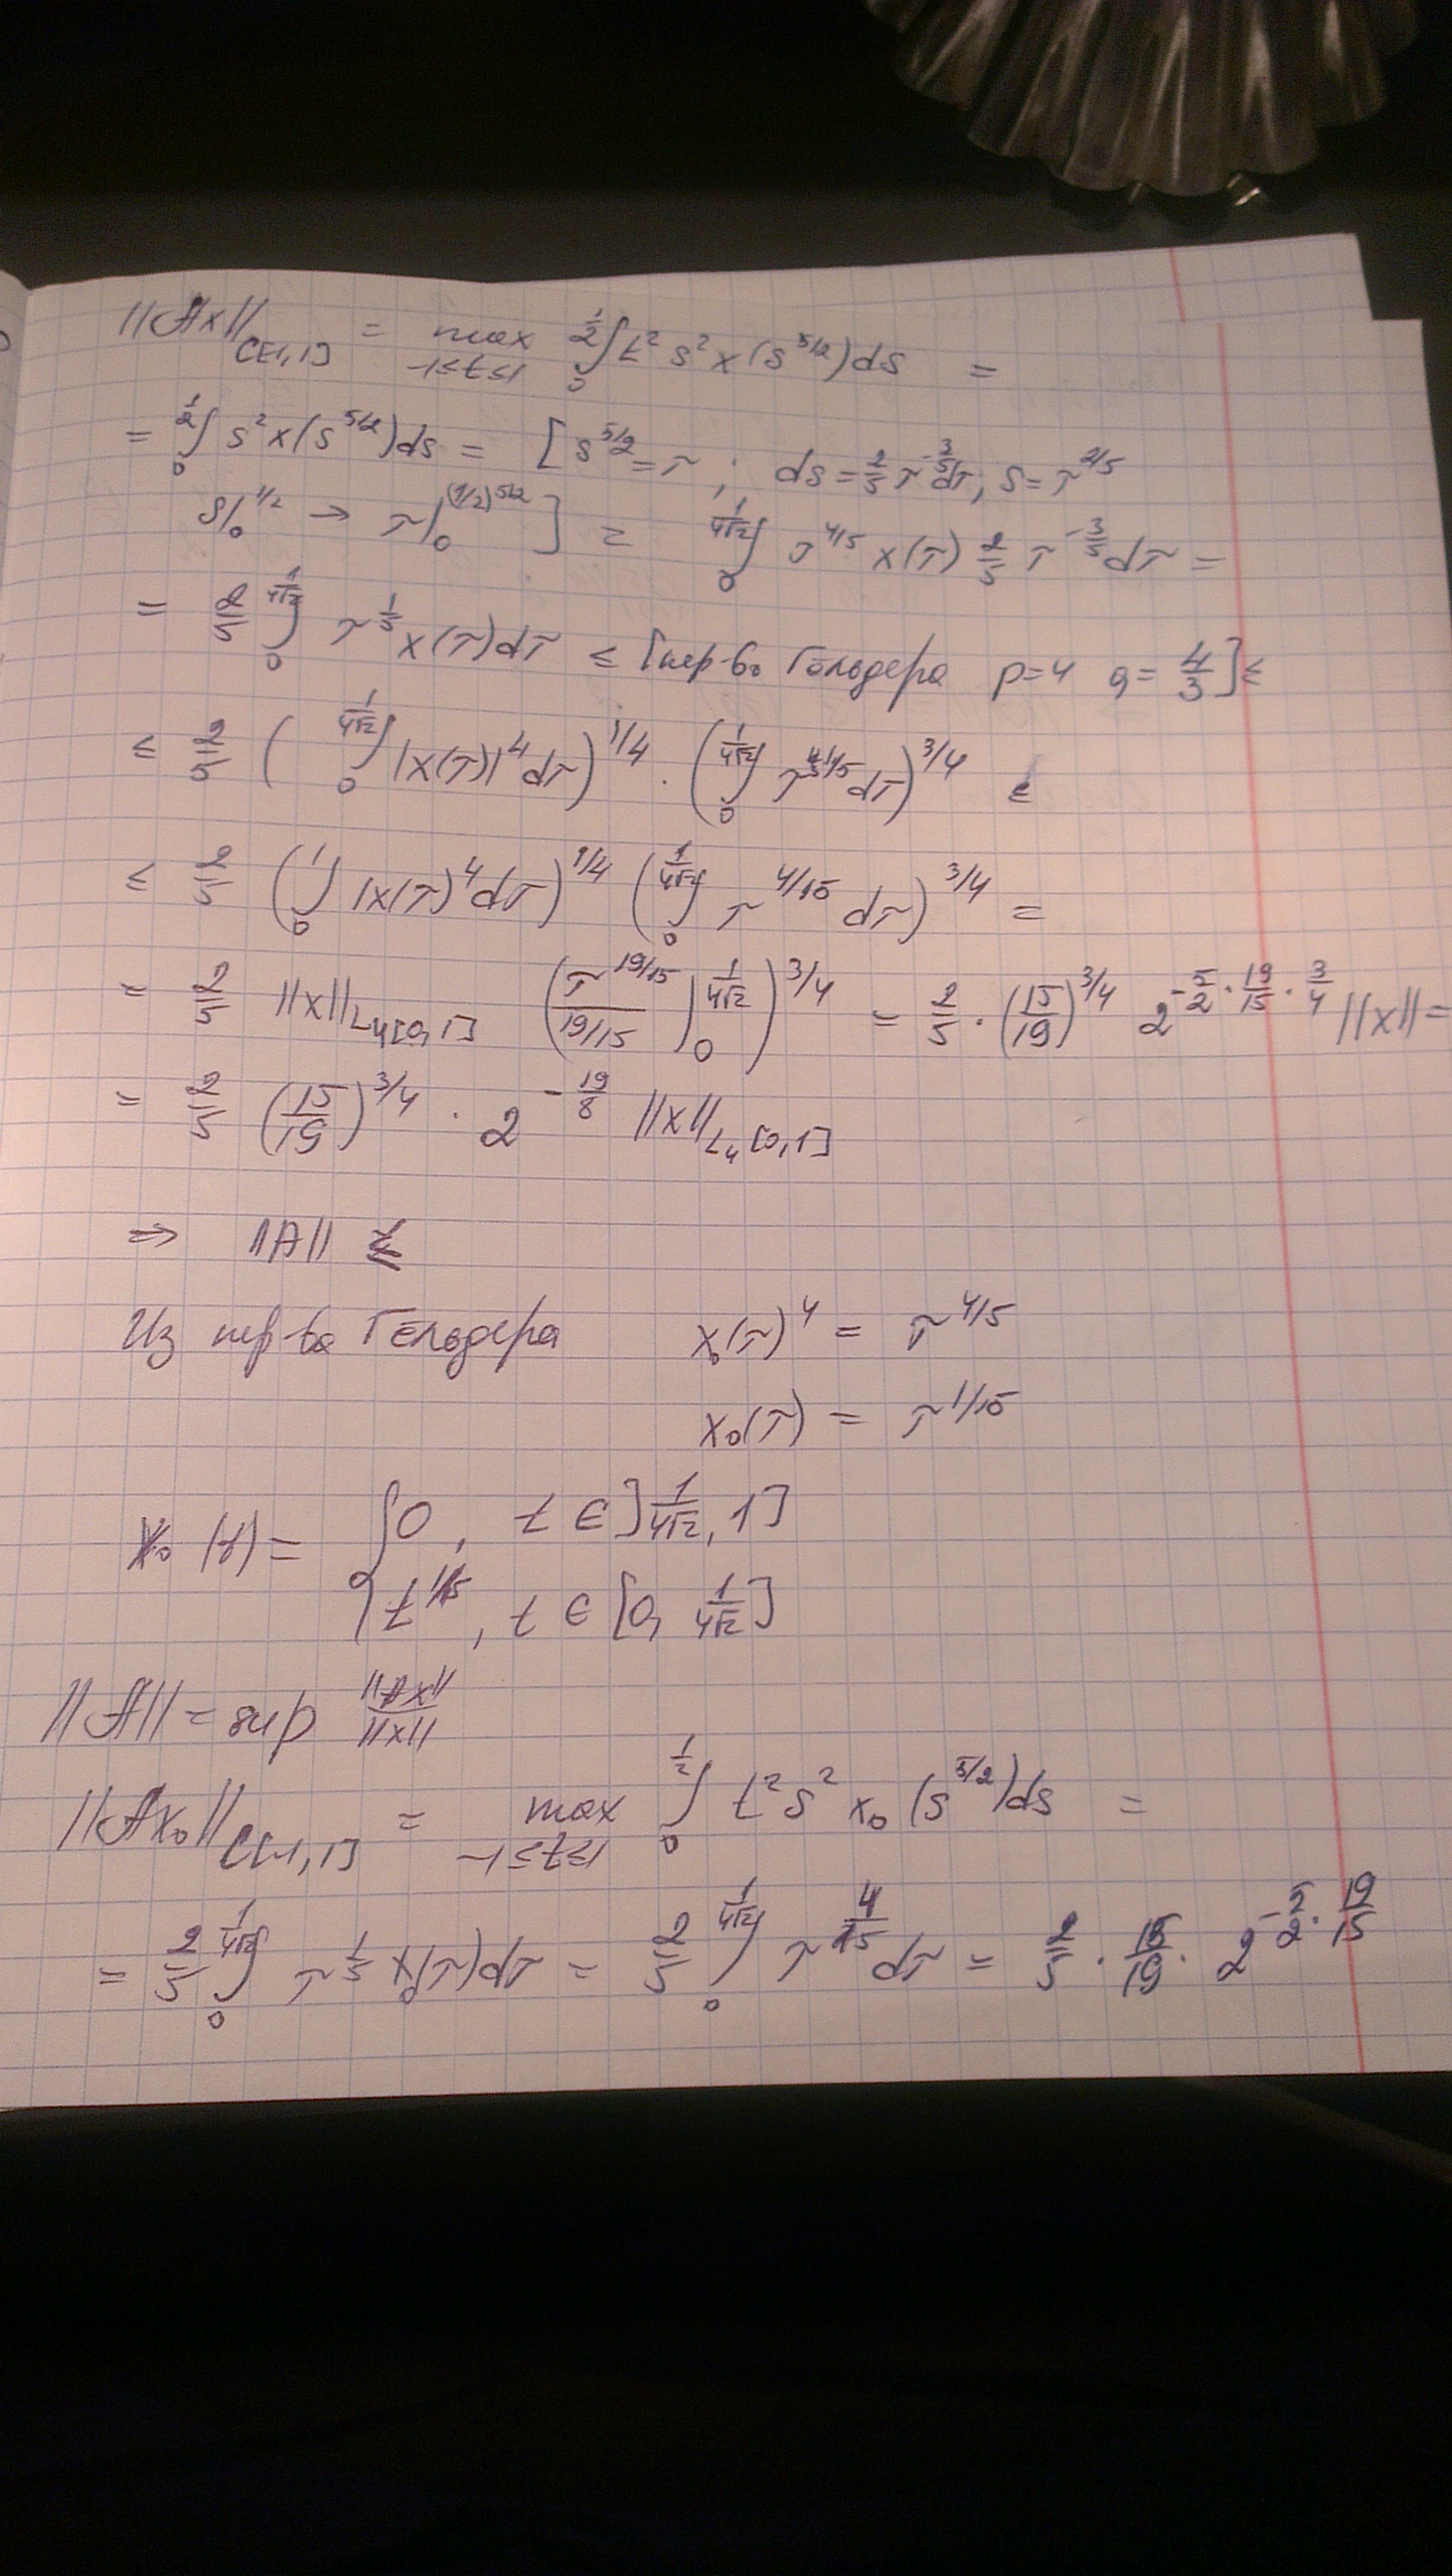 ||Ax||_{C[-1,1]} = max_{-1≤t≤1} ∫_0^{1/2} t² s² x(s^{5/2}) ds =
= ∫_0^{1/2} s² x(s^{5/2}) ds = [ s^{5/2} = τ ; ds = 2/5 τ^{-3/5} dτ, s = τ^{2/5}
s|_0^{1/2} → τ|_0^{(1/2)^{5/2}} ] = ∫_0^{1/(4√2)} τ^{4/5} x(τ) 2/5 τ^{-3/5} dτ =
= 2/5 ∫_0^{1/(4√2)} τ^{1/5} x(τ) dτ ≤ [нер-во Гёльдера p=4 q = 4/3] ≤
≤ 2/5 ( ∫_0^{1/(4√2)} |x(τ)|^4 dτ )^{1/4} · ( ∫_0^{1/(4√2)} τ^{4/3·1/5} dτ )^{3/4} ≤
≤ 2/5 ( ∫_0^1 |x(τ)^4 dτ )^{1/4} ( ∫_0^{1/(4√2)} τ^{4/15} dτ )^{3/4} =
= 2/5 ||x||_{L_4[0,1]} ( τ^{19/15} / (19/15) |_0^{1/(4√2)} )^{3/4} = 2/5 · (15/19)^{3/4} 2^{-5/2 · 19/15 · 3/4} ||x|| =
= 2/5 (15/19)^{3/4} · 2^{-19/8} ||x||_{L_4[0,1]}
⇒ ||A|| ≤
Из нер-ва Гёльдера x_0(τ)^4 = τ^{4/15}
x_0(τ) = τ^{1/15}
x_0(t) = { 0, t ∈ ]1/(4√2), 1]
t^{1/15}, t ∈ [0, 1/(4√2)]
||A|| = sup ||Ax||/||x||
||Ax_0||_{C[-1,1]} = max_{-1≤t≤1} ∫_0^{1/2} t² s² x_0(s^{5/2}) ds =
= 2/5 ∫_0^{1/(4√2)} τ^{1/5} x_0(τ) dτ = 2/5 ∫_0^{1/(4√2)} τ^{4/15} dτ = 2/5 · 15/19 · 2^{-5/2 · 19/15}